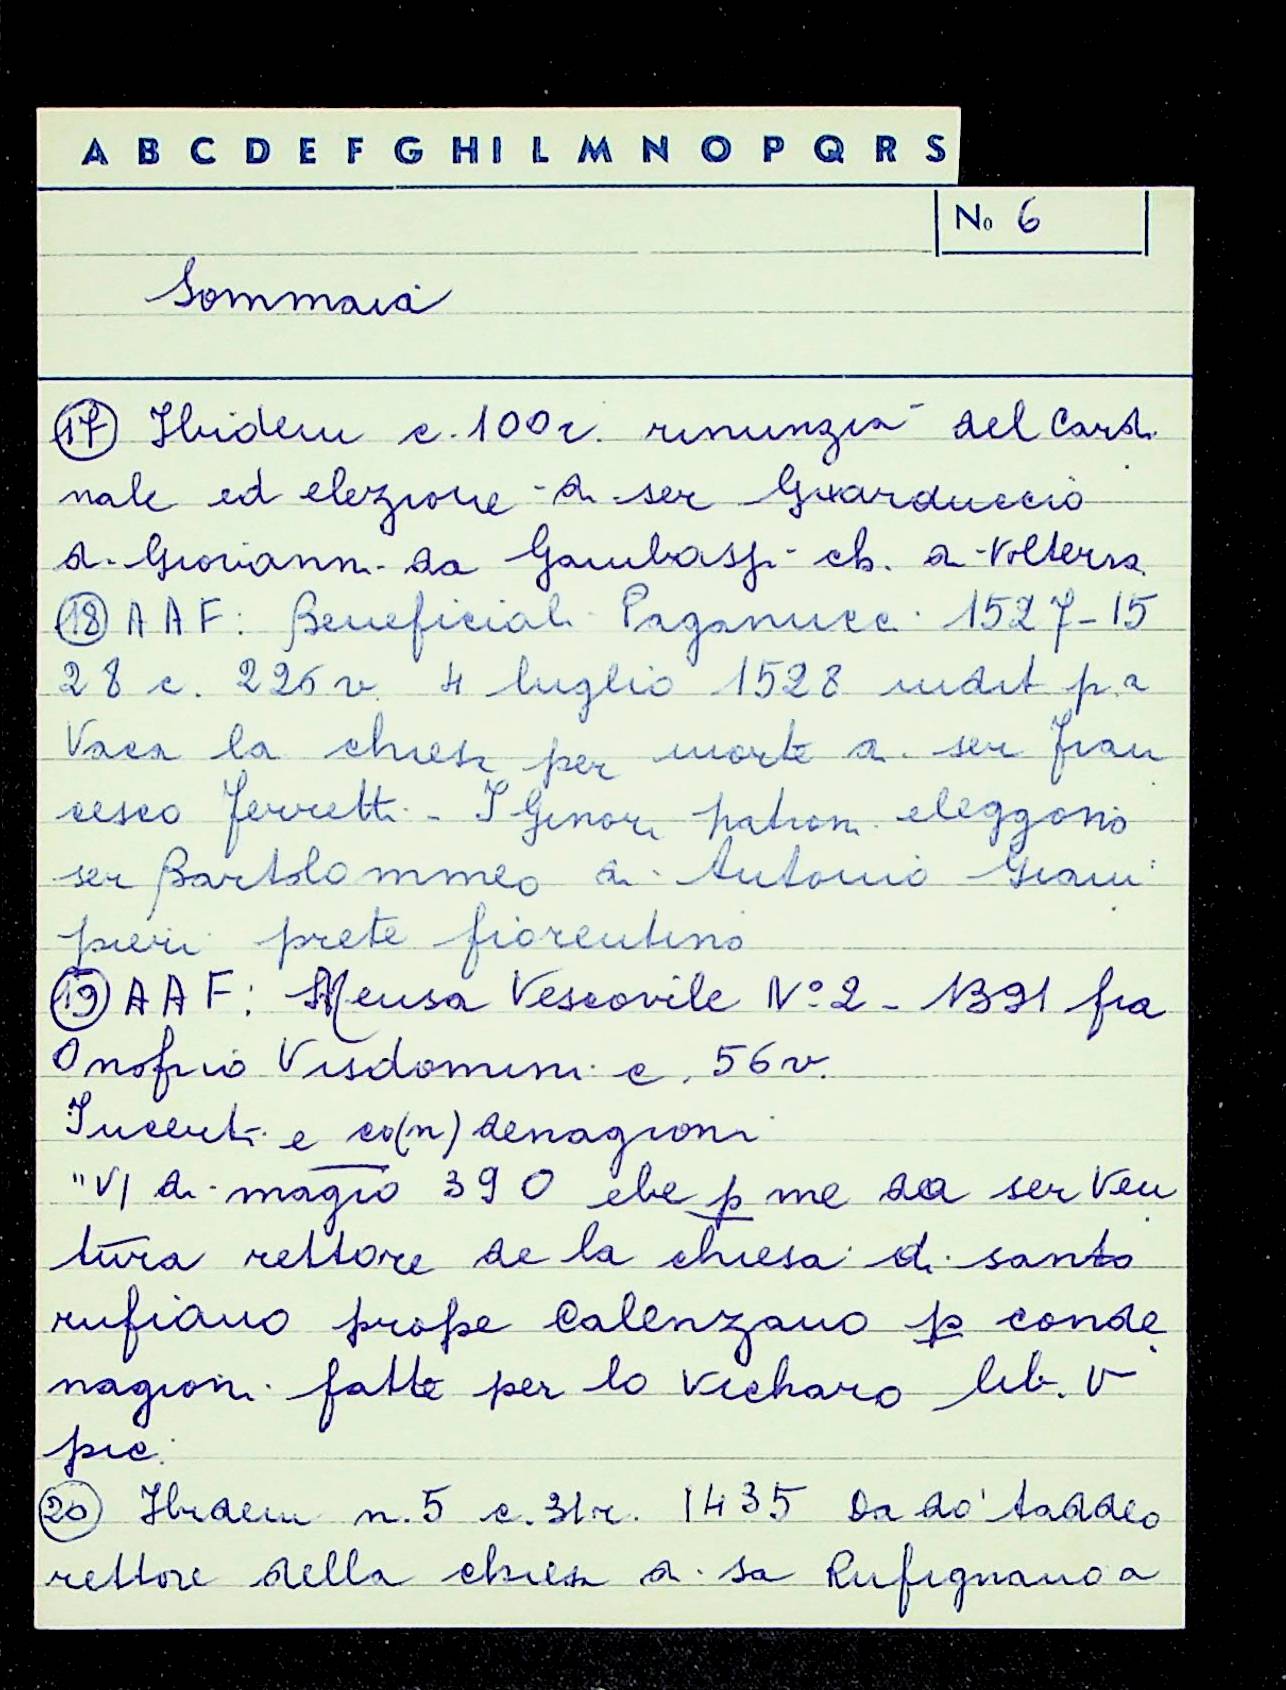 A B C D E F G H I L M N O P Q R S
No 6
Sommaia
17 Ibidem c. 100r. rinunzia del Cardi
nale ed elezione di ser Guarduccio
di Giovanni da Gambassi ch. di Volterra
18 AAF: Beneficiali Paganucci 1527-15
28 c. 226v 4 luglio 1528 indit p.a
Vaca la chiesa per morte di ser Fran
cesco Ferretti - I Ginori patroni eleggono
ser Bartolommeo di Antonio Giam
pieri prete fiorentino
19 AAF: Mensa Vescovile N° 2 - 1391 fra
Onofrio Visdomini c. 56v.
Incerti e co(n)denagioni
"VI di magio 390 ebe p me da ser Ven
tura rettore de la chiesa di santo
rufiano prope Calenzano p conde
nagioni fatte per lo vicharo lib. V
pic.
20 Ibidem n. 5 c. 31r. 1435 Da do' taddeo
rettore della chiesa di sa Rufignano a